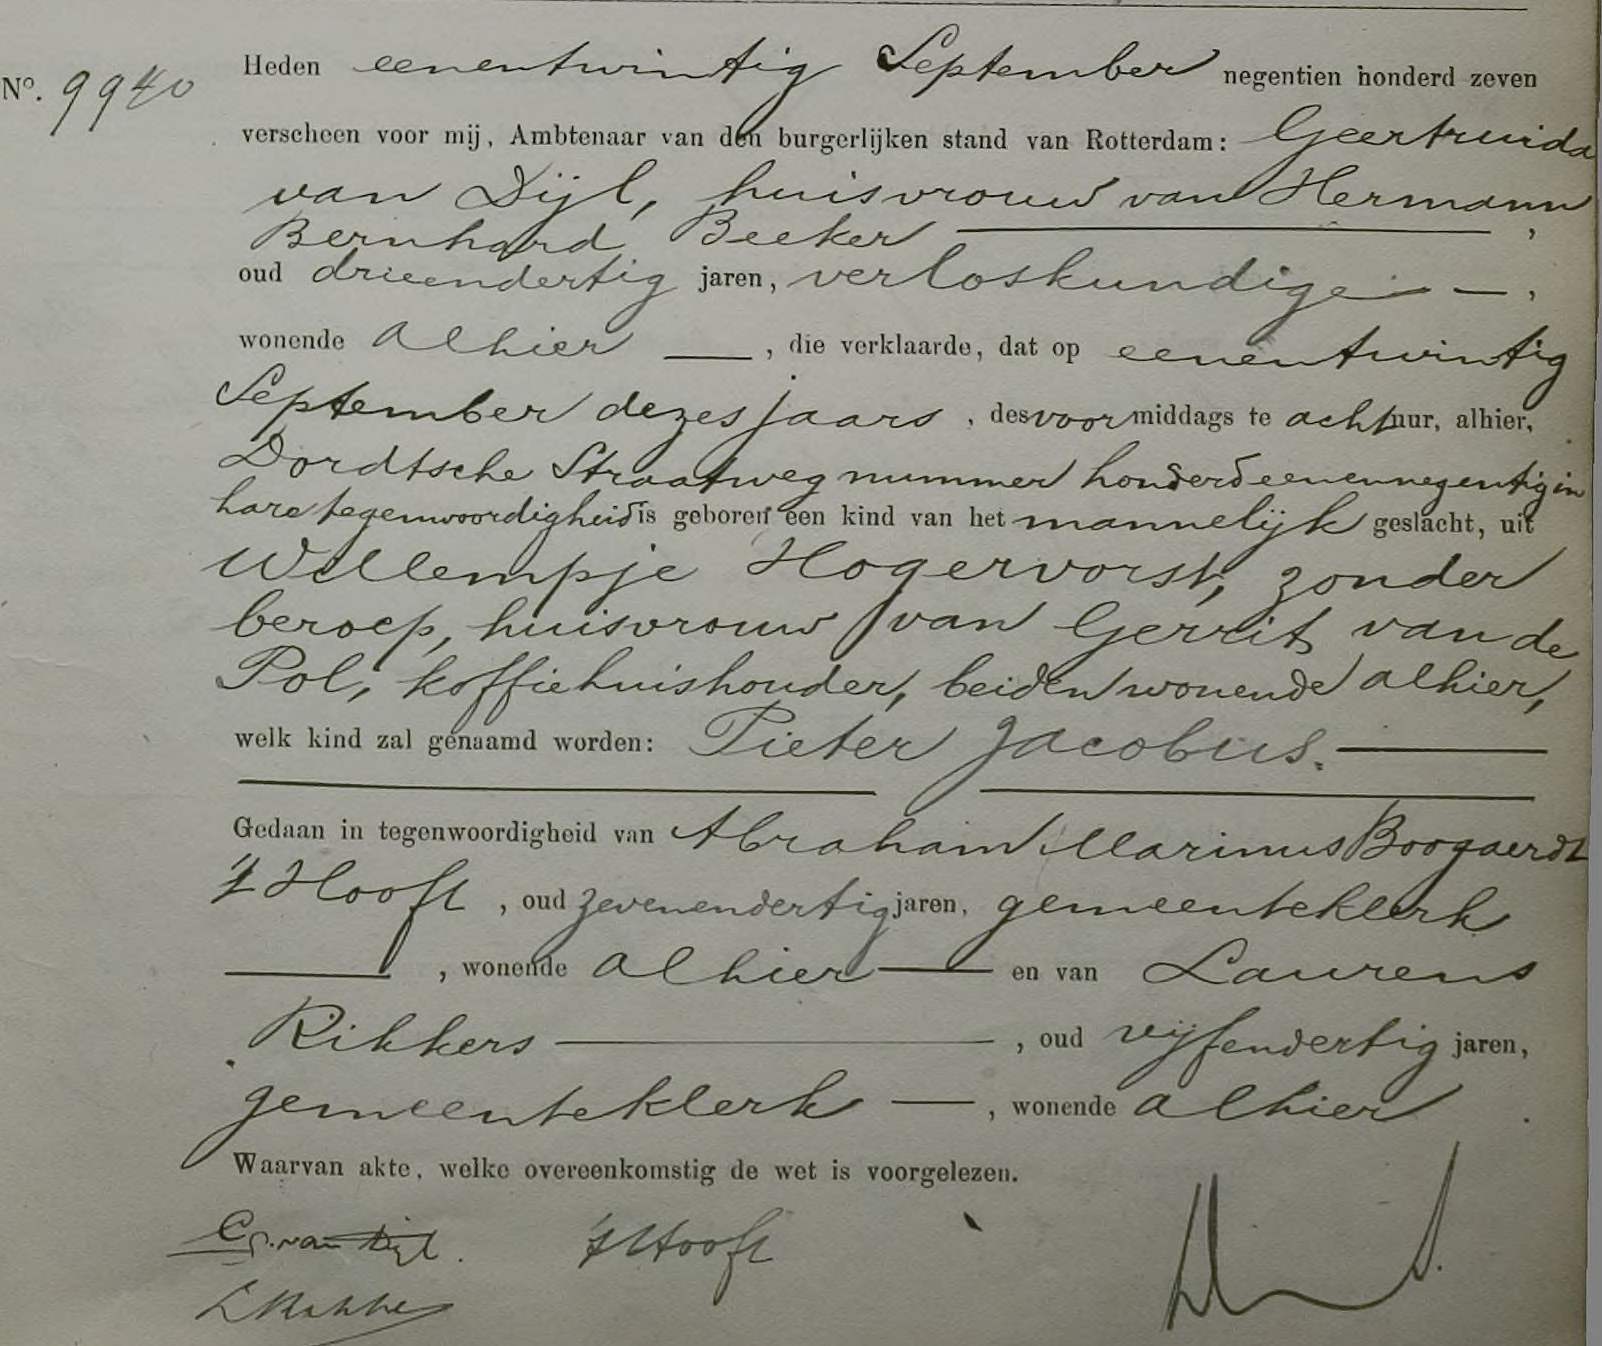 Nº. 9940
Heden eenentwintig September negentien honderd zeven
verscheen voor mij, Ambtenaar van den burgerlijken stand van Rotterdam: Geertruida
van Dijl, huisvrouw van Hermann
Bernhard Beeker ,
oud drieendertig jaren, verloskundige — ,
wonende alhier — , die verklaarde, dat op eenentwintig
September dezes jaars , des voor middags te acht uur, alhier,
Dordtsche Straatweg nummer honderdeenennegentig in
hare tegenwoordigheid is geboren een kind van het mannelijk geslacht, uit
Willempje Hogervorst, zonder
beroep, huisvrouw van Gerrit van de
Pol, koffiehuishouder, beiden wonende alhier,
welk kind zal genaamd worden: Pieter Jacobus. —
Gedaan in tegenwoordigheid van Abraham Marinus Boogaerdt
't Hooft , oud zevenendertig jaren, gemeenteklerk
— , wonende alhier — en van Laurens
Rikkers — , oud vijfendertig jaren,
gemeenteklerk — , wonende alhier
Waarvan akte, welke overeenkomstig de wet is voorgelezen.
G. van Dijl. 't Hooft
L Rikkers